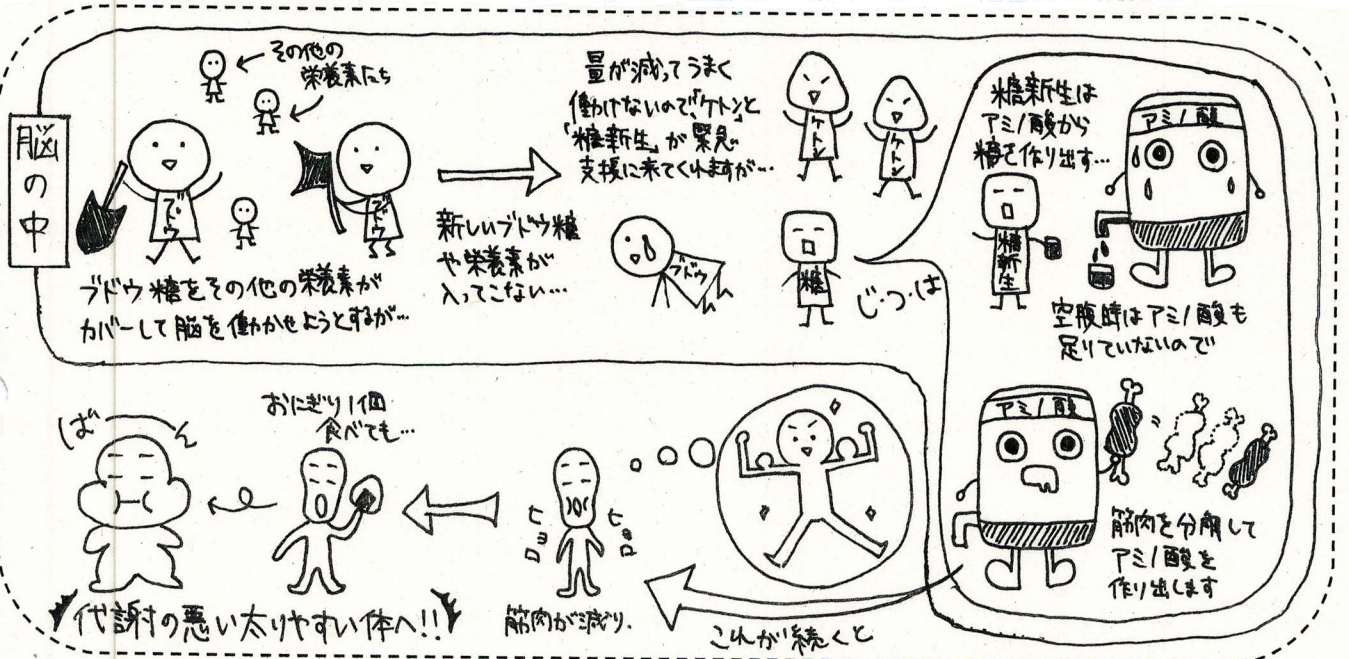 脳の中
その他の
栄養素たち
ブドウ
ブドウ
ブドウ糖をその他の栄養素が
カバーして脳を働かせようとするが…
新しいブドウ糖
や栄養素が
入ってこない…
量が減ってうまく
働けないので「ケトン」と
「糖新生」が緊急
支援に来てくれますが…
ケトン
ケトン
ブドウ
糖
じ・つ・は
糖新生は
アミノ酸から
糖を作り出す…
アミノ酸
糖新生
空腹時はアミノ酸も
足りていないので
アミノ酸
筋肉を分解して
アミノ酸を
作り出します
これが続くと
筋肉が減り、
ヒョロ
ヒョロ
おにぎり1個
食べても…
ばーん
代謝の悪い太りやすい体へ!!